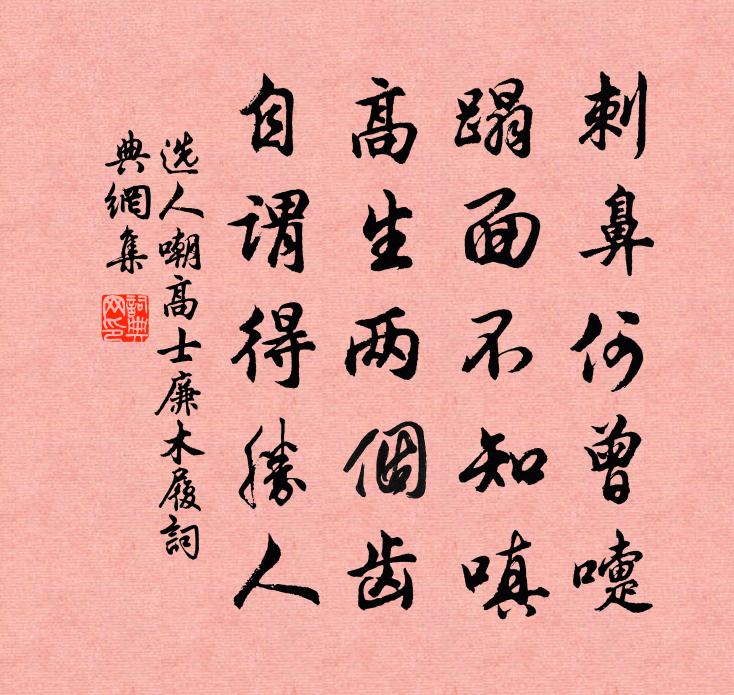 刺鼻何曾嚏
蹋面不知嗔
高生两個齿
自谓得勝人
选人嘲高士廉木履詞
典網集
詞典网印